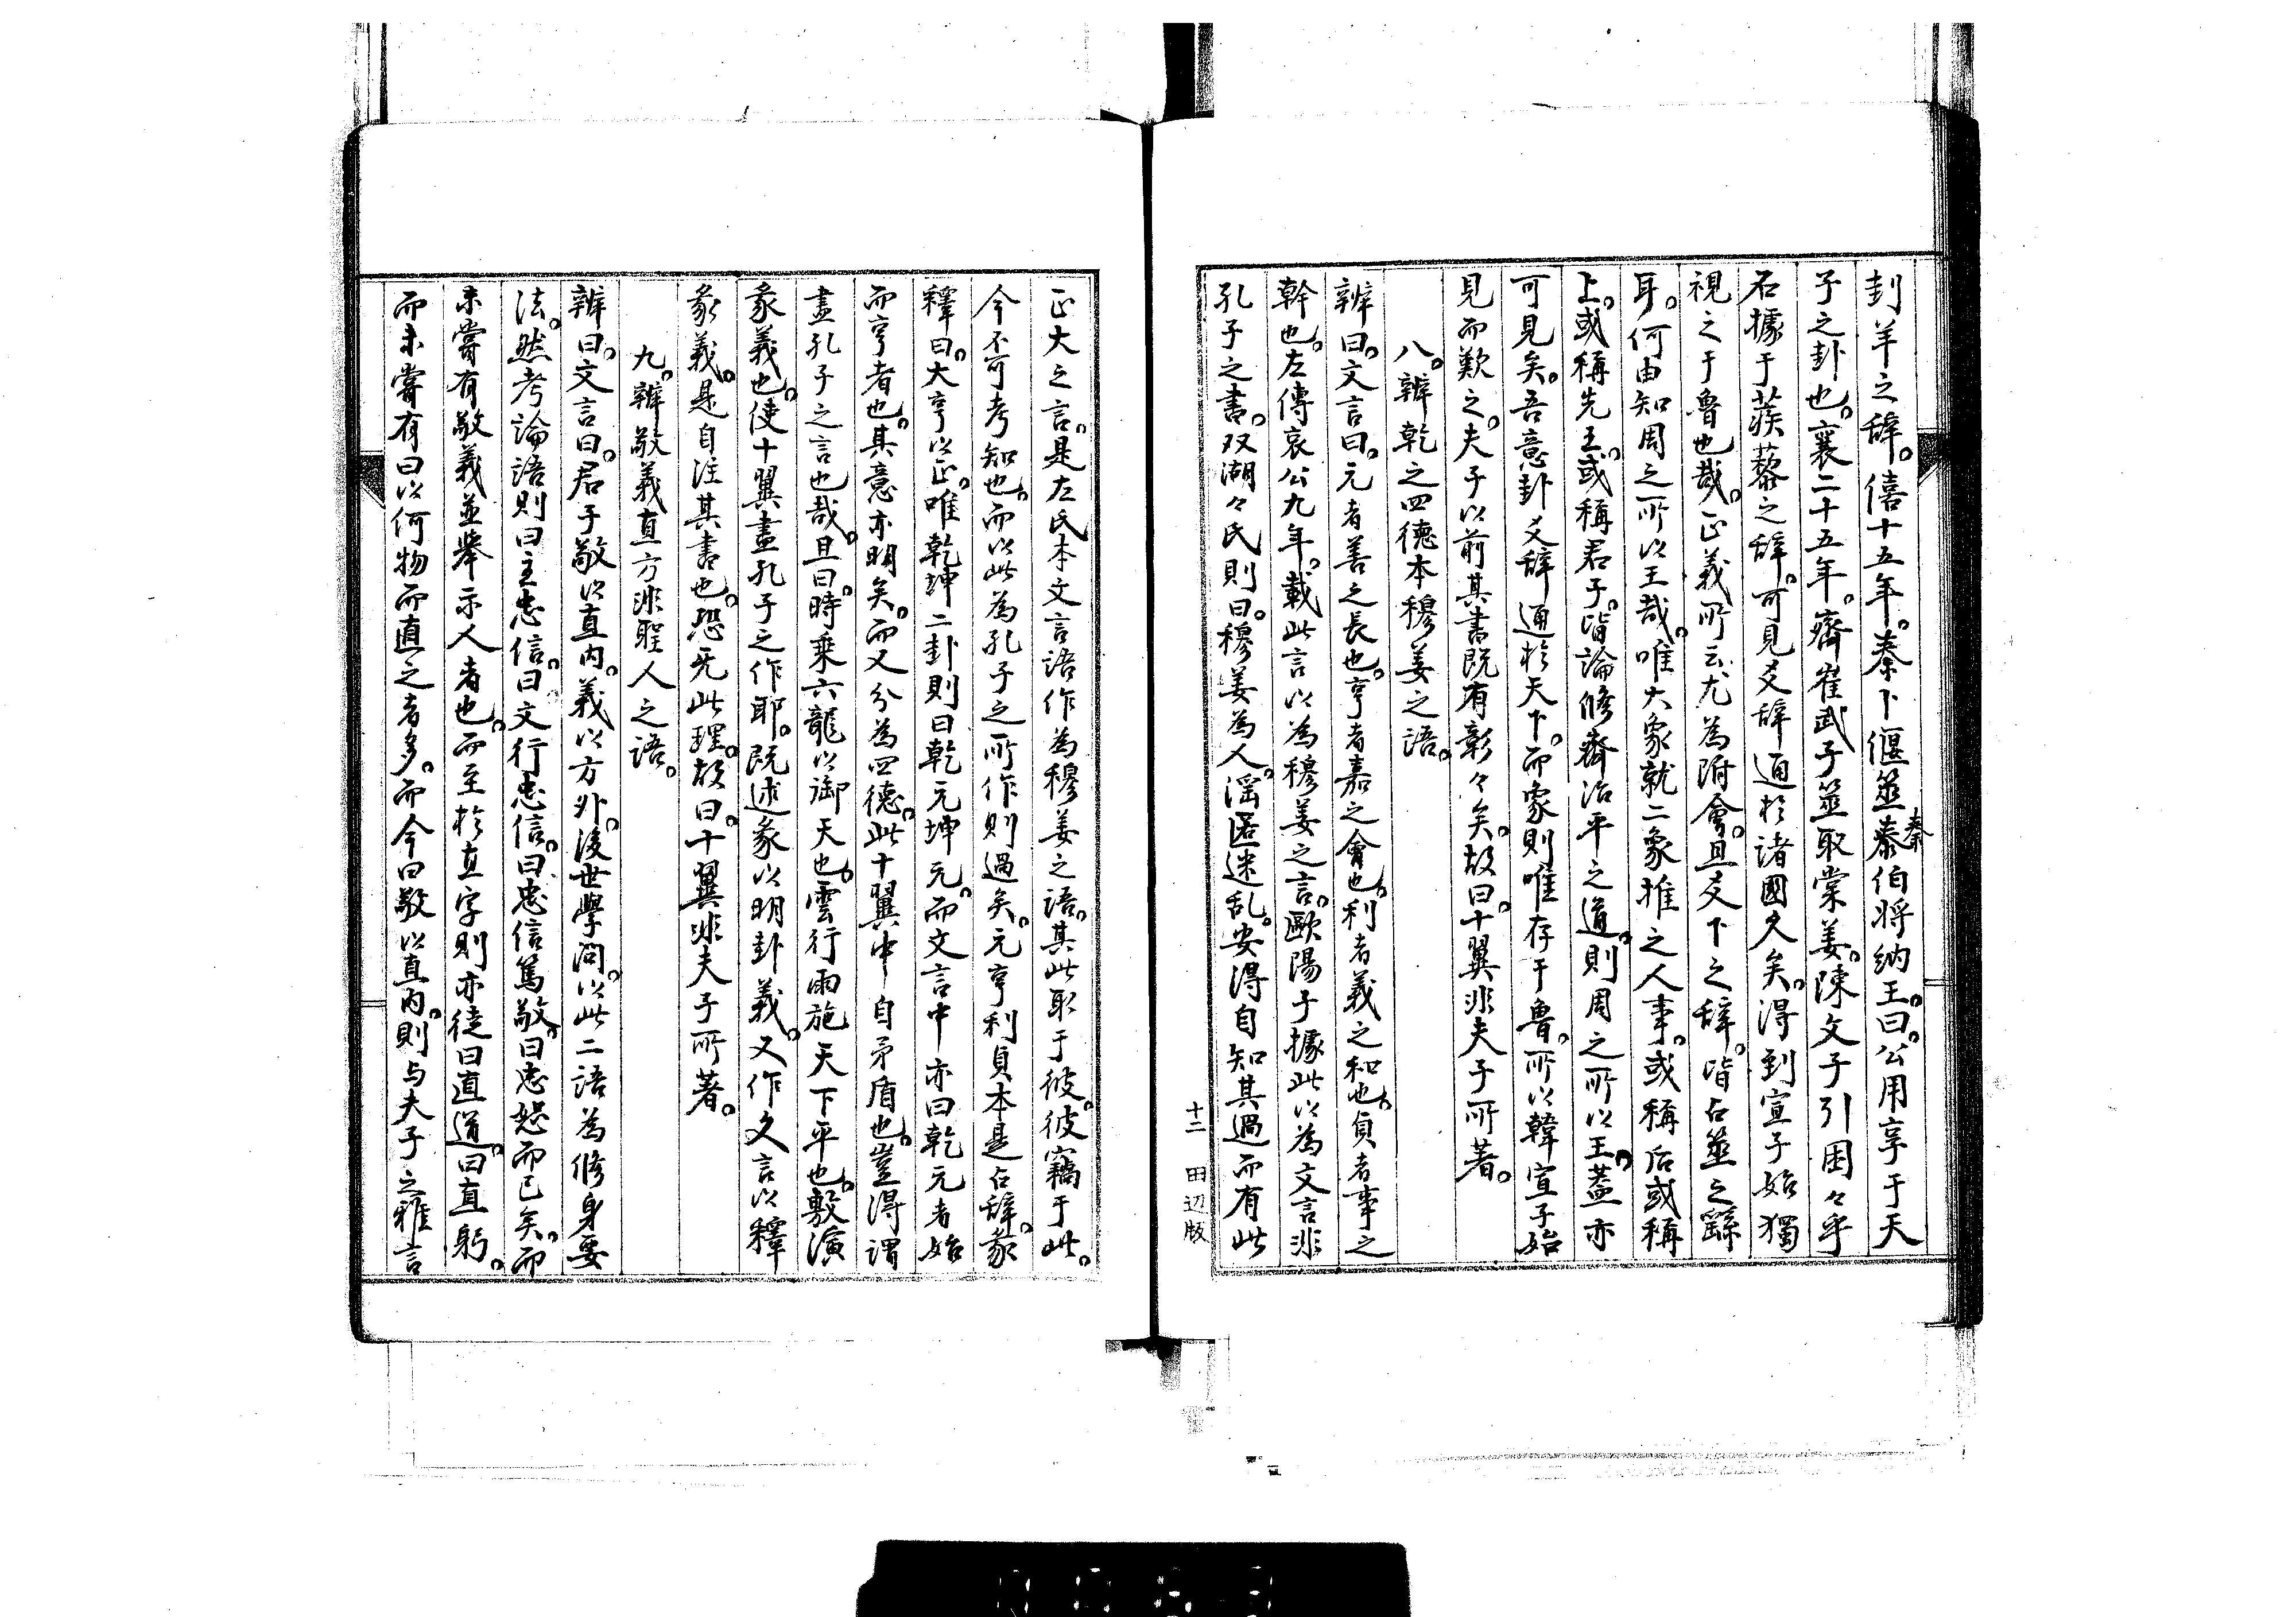 刲羊之辞。僖十五年。秦卜偃筮秦伯将納王。曰。公用享于天
子之卦也。襄二十五年。齊崔武子筮取棠姜。陳文子引困々乎
石據于蒺藜之辞。可見爻辞通於諸國久矣。得到宣子始獨
視之于魯也哉。正義所云尤為附會。且爻下之辞。皆占筮之繇
耳。何由知周之所以王哉。唯大象就二象推之人事。或稱后或稱
上。或稱先王。或稱君子。皆論修齊治平之道。則周之所以王。蓋亦
可見矣。吾意卦爻辞通於天下。而象則唯存于魯。所以韓宣子始
見而歎之。夫子以前其書既有彰々矣。故曰。十翼非夫子所著。
八。辨乾之四德本穆姜之語。
辨曰。文言曰。元者善之長也。亨者嘉之會也。利者義之和也。貞者事之
幹也。左傳哀公九年。載此言以為穆姜之言。歐陽子據此以為文言非
孔子之書。双湖々氏則曰。穆姜為人。淫慝迷乱。安得自知其過而有此
十二 田辺版
正大之言。是左氏本文言語作為穆姜之語。其此取于彼。彼竊于此。
今不可考知也。而以此為孔子之所作則過矣。元亨利貞本是占辞。彖
釋曰。大亨以正。唯乾坤二卦則曰乾元坤元。而文言中亦曰乾元者始
而亨者也。其意亦明矣。而又分為四德。此十翼中自矛盾也。豈得謂
盡孔子之言也哉。且曰。時乗六龍以御天也。雲行雨施天下平也。敷演
彖義也。使十翼盡孔子之作耶。既述彖以明卦義。又作文言以釋
彖義。是自注其書也。恐无此理。故曰。十翼非夫子所著。
九。辨敬義直方非聖人之語。
辨曰。文言曰。君子敬以直内。義以方外。後世學問。以此二語為修身要
法。然考論語則曰主忠信。曰文行忠信。曰忠信篤敬。曰忠恕而已矣。而
未嘗有敬義並舉示人者也。而至於直字則亦徒曰直道。曰直躬。
而未嘗有曰以何物而直之者多。而今曰敬以直内。則与夫子之雅言